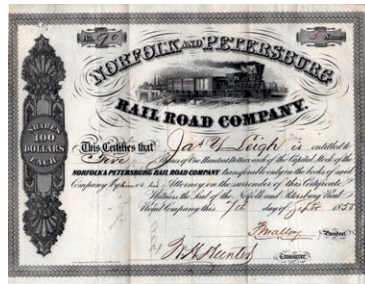 No. 90
5 Shares
NORFOLK AND PETERSBURG
RAIL ROAD COMPANY.
SHARES
100
DOLLARS
EACH
This Certifies that Jas Y Leigh is entitled to
Five Shares of One Hundred Dollars each of the Capital Stock of the
NORFOLK & PETERSBURG RAIL ROAD COMPANY transferable only on the books of said
Company by him or his Attorney on the surrender of this Certificate
Witness the Seal of the Norfolk and Petersburg Rail
Road Company this 7th day of Sept 185
President.
W. H. Hunter
Treasurer.